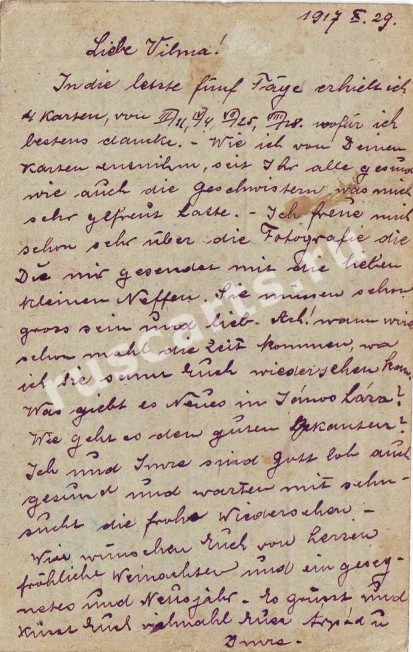 1917 X. 29.
Liebe Vilma!
In die letzte fünf Täge erhielt ich
4 Karten, von III/11, IV/4 VII/25, VIII/28. wofür ich
bestens dancke. - Wie ich von Deinen
Karten entnihm, seit Ihr alle gesund
wie auch die Geschwistern was mich
sehr gefreut hatte. - Ich freue mich
schon sehr über die Fotografie die
Du mir gesendet mit die lieben
kleinen Neffen. Sie müssen schon
gross sein und lieb. Ach! wann wird
schon mahl die Zeit kommen, wo
ich die samt Euch wiedersehen kann.
Was giebt es Neues in János háza?
Wie geht es den guten Bekanten?
Ich und Imre sind gott lob auch
gesund und warten mit sehn-
sucht die frohe Wiedersehen -
Wir wünschen Euch von herzen
fröhliche Weinachten und ein geseg-
netes und Neusjahr. - Es grüsst und
küsst Euch vielmahl Euer Árpád u
Imre. -
ruscards.ru